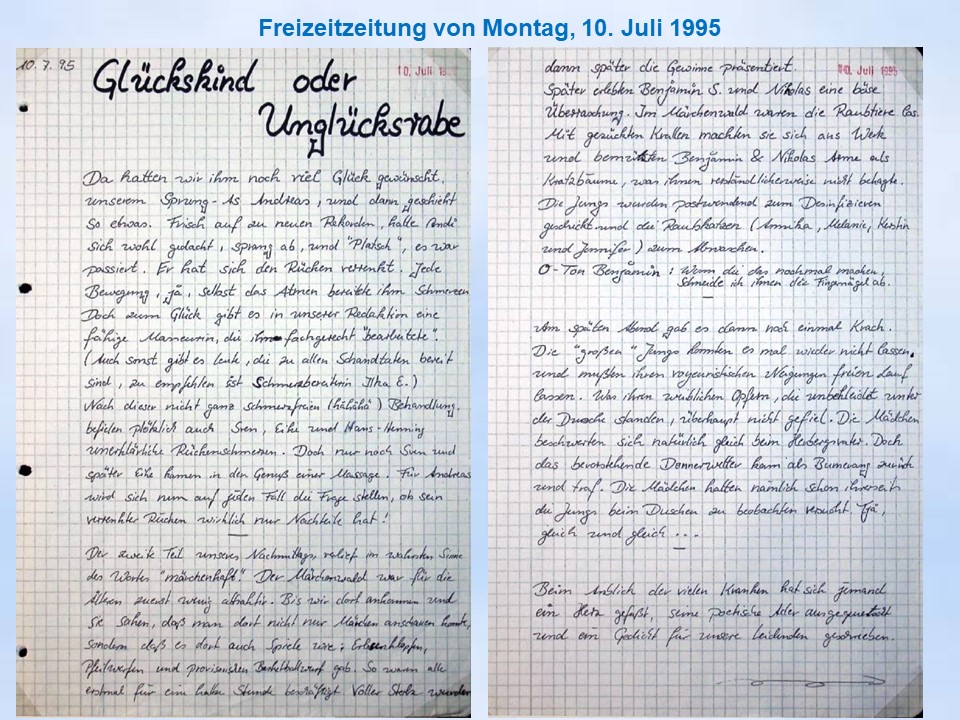 Freizeitzeitung von Montag, 10. Juli 1995
10.7.95
10. Juli 19
Glückskind oder
Unglücksrabe
Da hatten wir ihm noch viel Glück gewünscht,
unserem Sprung-As Andreas, und dann geschieht
so etwas. Frisch auf zu neuen Rekorden, hatte Andi
sich wohl gedacht, sprang ab, und "Platsch", es war
passiert. Er hat sich den Rücken verrenkt. Jede
Bewegung, ja, selbst das Atmen bereitete ihm Schmerzen
Doch zum Glück gibt es in unserer Redaktion eine
fähige Masseurin, die ihn fachgerecht "bearbeitete".
(Auch sonst gibt es Leute, die zu allen Schandtaten bereit
sind, zu empfehlen ist Schmerzberaterin Ilka E.)
Nach dieser nicht ganz schmerzfreien (hähähä) Behandlung,
befielen plötzlich auch Sven, Eike und Hans-Henning
unerklärliche Rückenschmerzen. Doch nur noch Sven und
später Eike kamen in den Genuß einer Massage. Für Andreas
wird sich nun auf jeden Fall die Frage stellen, ob sein
verrenkter Rücken wirklich nur Nachteile hat!
Der zweite Teil unseres Nachmittags, verlief im wahrsten Sinne
des Wortes "märchenhaft." Der Märchenwald war für die
Älteren zuerst wenig attraktiv. Bis wir dort ankamen und
sie sahen, daß man dort nicht nur Märchen anschauen konnte,
sondern daß es dort auch Spiele wie: Erbsenklopfen,
Pfeilwerfen und provisorischen Basketballwurf gab. So waren alle
erstmal für eine halbe Stunde beschäftigt Voller Stolz wurden
10. Juli 1995
dann später die Gewinne präsentiert.
Später erlebten Benjamin S. und Nikolas eine böse
Überraschung. Im Märchenwald waren die Raubtiere los.
Mit gezückten Krallen machten sie sich ans Werk
und benutzten Benjamin & Nikolas Arme als
Kratzbäume, was ihnen verständlicherweise nicht behagte.
Die Jungs wurden postwendend zum Desinfizieren
geschickt und die Raubkatzen (Annika, Melanie, Kerstin
und Jennifer) zum Abwaschen.
O-Ton Benjamin: Wenn die das nochmal machen,
Schneide ich ihnen die Fingernägel ab.
Am späten Abend gab es dann noch einmal Krach.
Die "großen" Jungs konnten es mal wieder nicht lassen,
und mußten ihren voyeuristischen Neigungen freien Lauf
lassen. Was ihren weiblichen Opfern, die unbekleidet unter
der Dusche standen, überhaupt nicht gefiel. Die Mädchen
beschwerten sich natürlich gleich beim Herbergsvater. Doch
das bevorstehende Donnerwetter kam als Bumerang zurück
und traf. Die Mädchen hatten nämlich schon ihrerseits
die Jungs beim Duschen zu beobachten versucht. Tja,
gleich und gleich ...
Beim Anblick der vielen Kranken hat sich jemand
ein Herz gefaßt, seine poetische Ader ausgequetscht
und ein Gedicht für unsere Leidenden geschrieben.